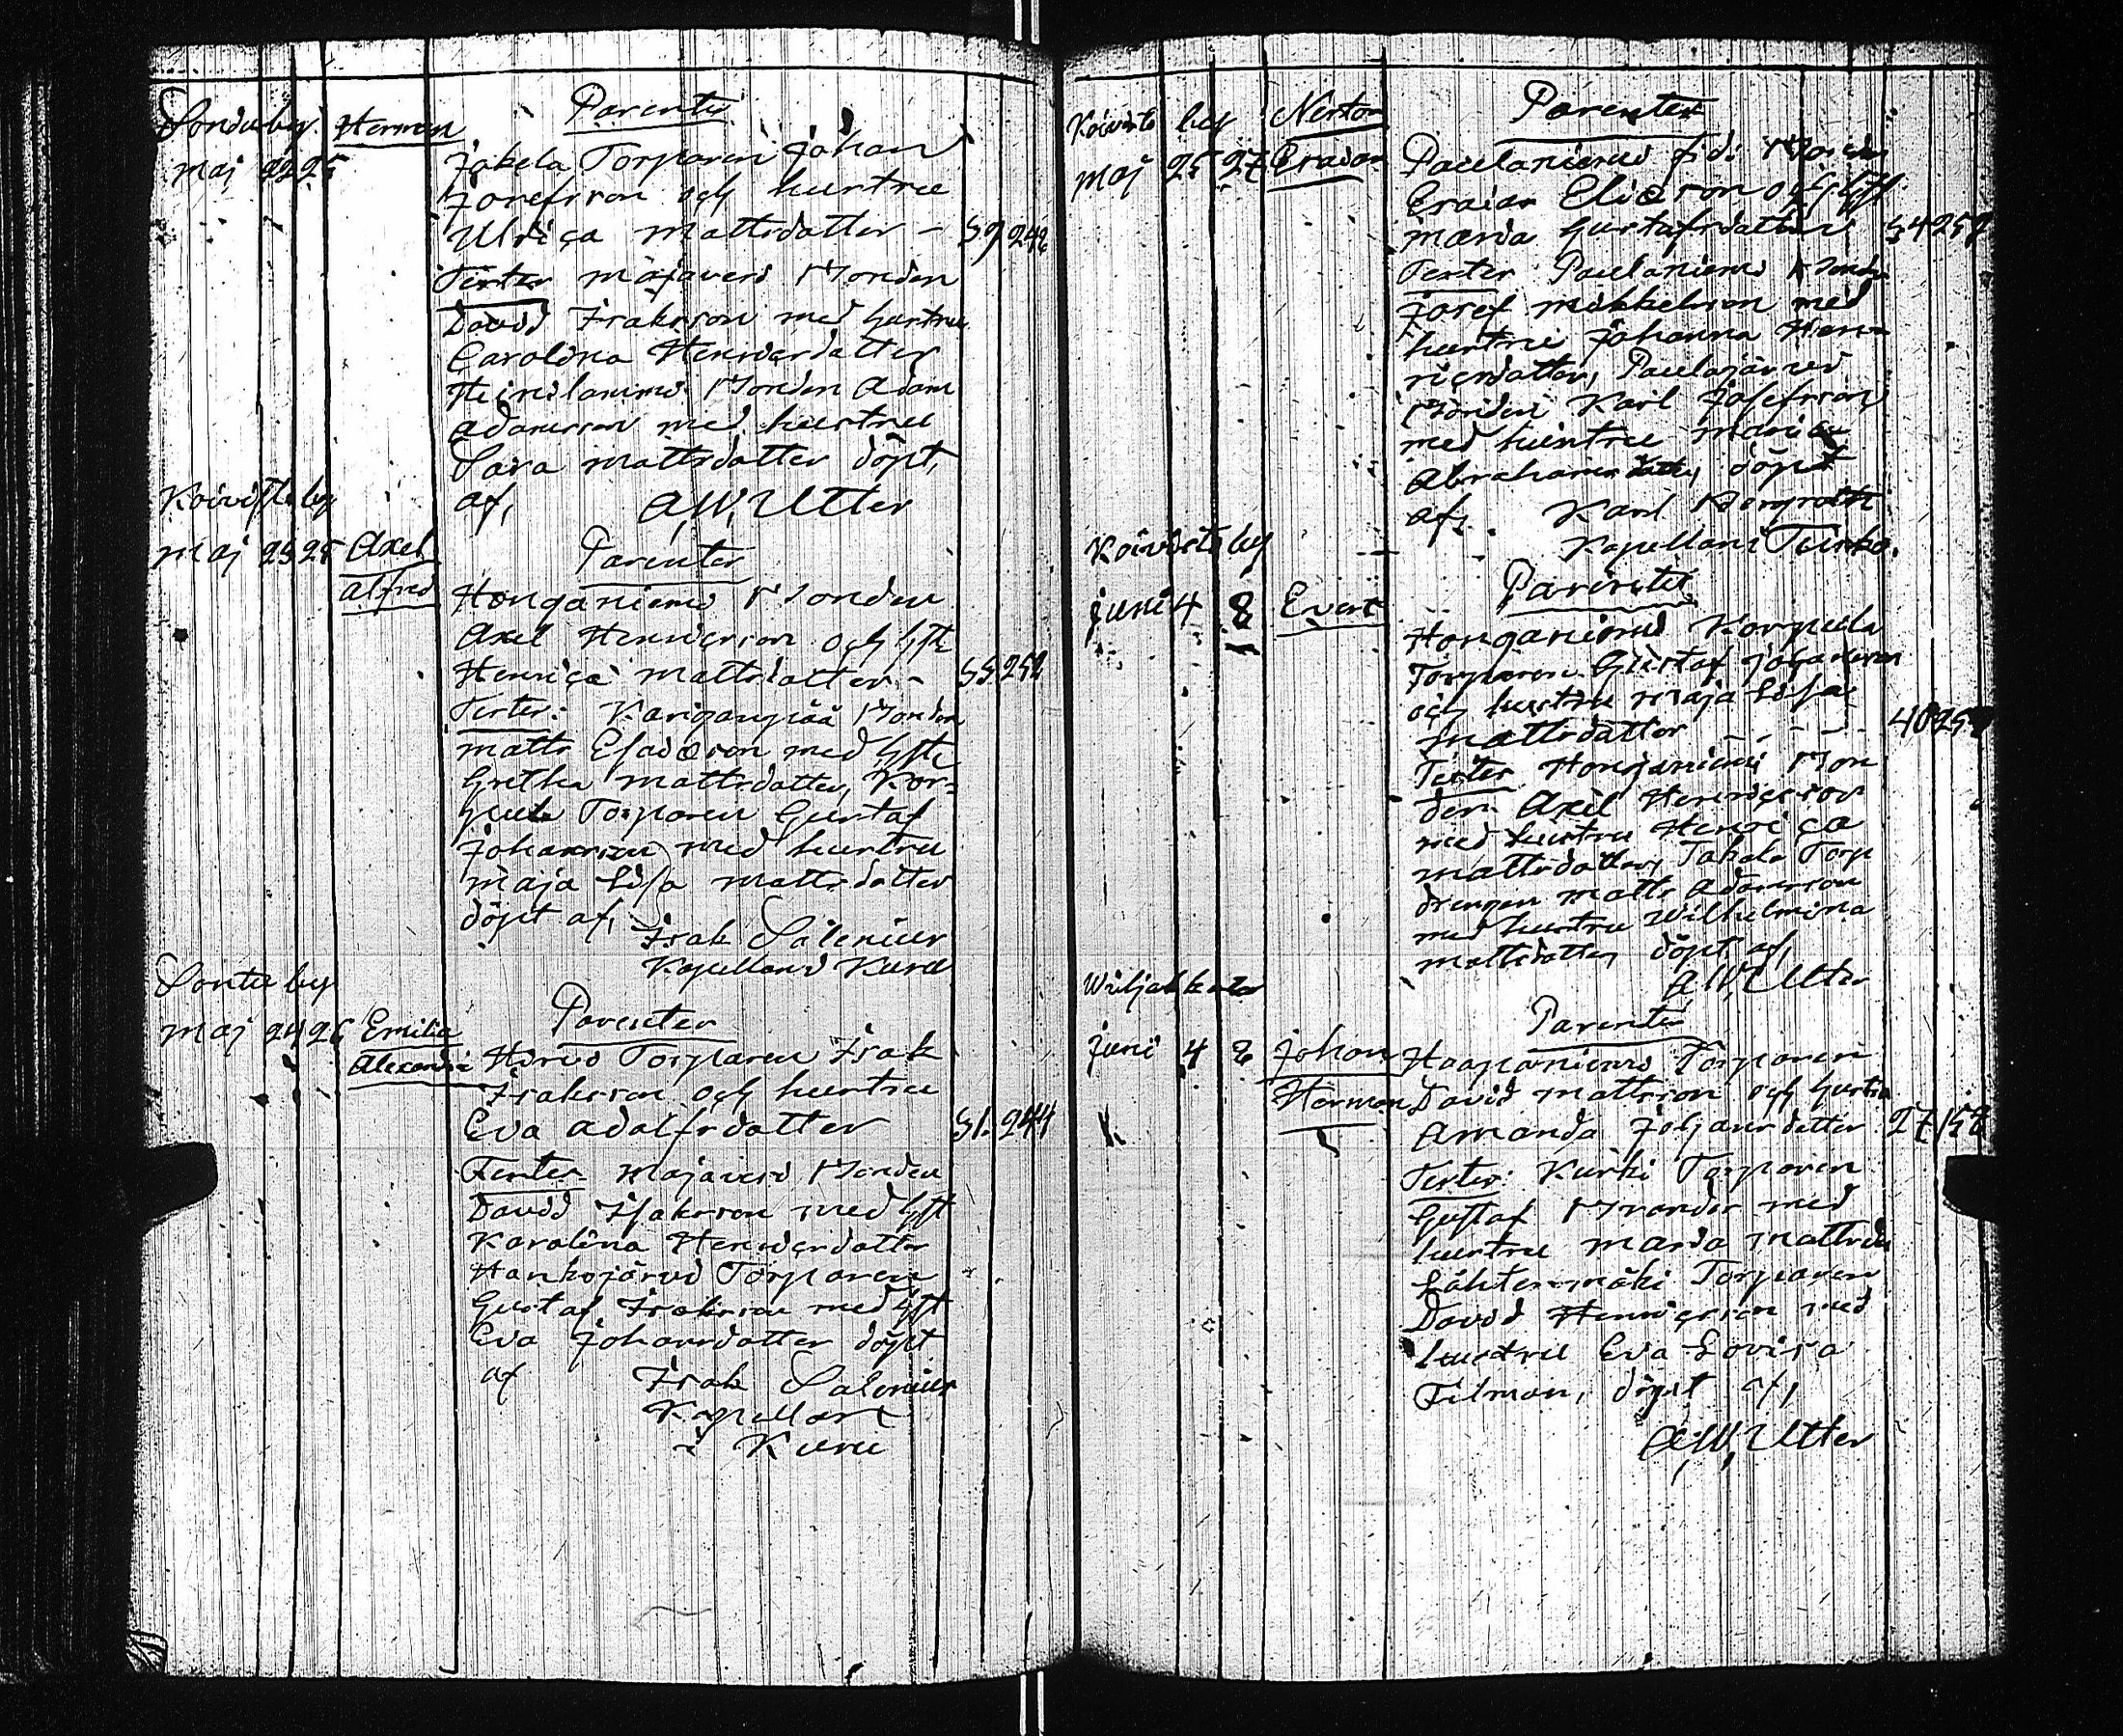 Sontu by Herman
Parenter
Maj 22 25
Jokela Torparen Johan
Josefsson och hustru
Ulrica Mattsdotter - 39 248
Testes Majaveri Bonden
David Isaksson med hustru
Carolina Henricsdotter
Bonden Adam
Adamsson med hustru
Sara Mattsdotter döpt,
af, A, W, Utter
Koivisto by
Maj 23 25 Axel
Alfred
Parenter
Honganiemi Bonden
Axel Henricsson och hst
Henrica Mattsdotter - 33 252
Testes: Bonden
Matts Esaiasson med hst
Gretha Mattsdotter, Kor=
pula Torparen Gustaf
Johansson med hustru
Maja Lisa Mattsdotter
döpt af, Isak Salenius
Kapellan i Kuru
Sontu by
Maj 24 26 Emilia
Alexandra
Parenter
Torparen Isak
Isaksson och hustru
Eva Adolfsdotter 31. 244
Testes Majaveri Bonden
David Isaksson med hst
Karolina Henricsdotter
Hankojärvi Torparen
Gustaf Isaksson med hst
Eva Johansdotter döpt
af Isak Salenius
Kapellan
i Kuru
Koivisto by Nestor
Parenter
Maj 25 27 Esaias
Paulaniemi
Esaias Eliasson och hst
Maria Gustafsdotter 34 257
Testes Paulaniemi Bonden
Josef Mikkelsson med
hustru Johanna Hen=
ricsdotter, Paulajärvi
Bonden Karl Josefsson
med hustru Maria
Abrahamsdotter, döpt
af, Karl Bergroth
Kapellan i
Koivisto by
Juni 4 8 Evert
Parenter
Honganiemi Korpula
Torparen Gustaf Johansson
och hustru Maja Lisa
Mattsdotter - - - - 40 25
Testes Honganiemi Bon
den Axel Henricsson
med hustru Henrica
Mattsdotter, Torp
drengen Matts Adamsson
med hustru Wilhelmina
Mattsdotter döpt af,
A, W, Utter
Wiljakkala
Parenter
Juni 4 8 Johan Haapaniemi Torparen
Herman David Mattsson och hustru
Amanda Johansdotter 27 158
Testes: Kurki Torparen
Gustaf med
hustru Maria Mattsd
Lähtenmäki Torparen
David Henricsson med
hustru Eva Lovisa
Tilman, döpt af,
A, W, Utter